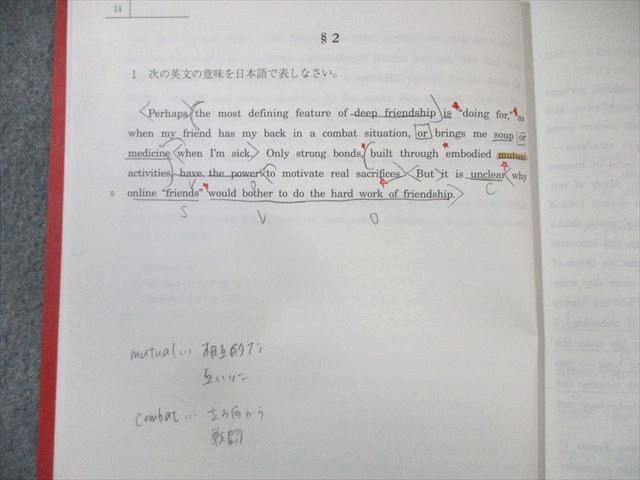 14
§2
1 次の英文の意味を日本語で表しなさい。
Perhaps the most defining feature of deep friendship is “doing for,” as
when my friend has my back in a combat situation, or brings me soup or
medicine when I'm sick. Only strong bonds, built through embodied mutual
activities, have the power to motivate real sacrifices. But it is unclear why
5 online “friends” would bother to do the hard work of friendship.
C
V
O
S V O
mutual… 相互的な
互いに
combat… 立ち向かう
戦闘